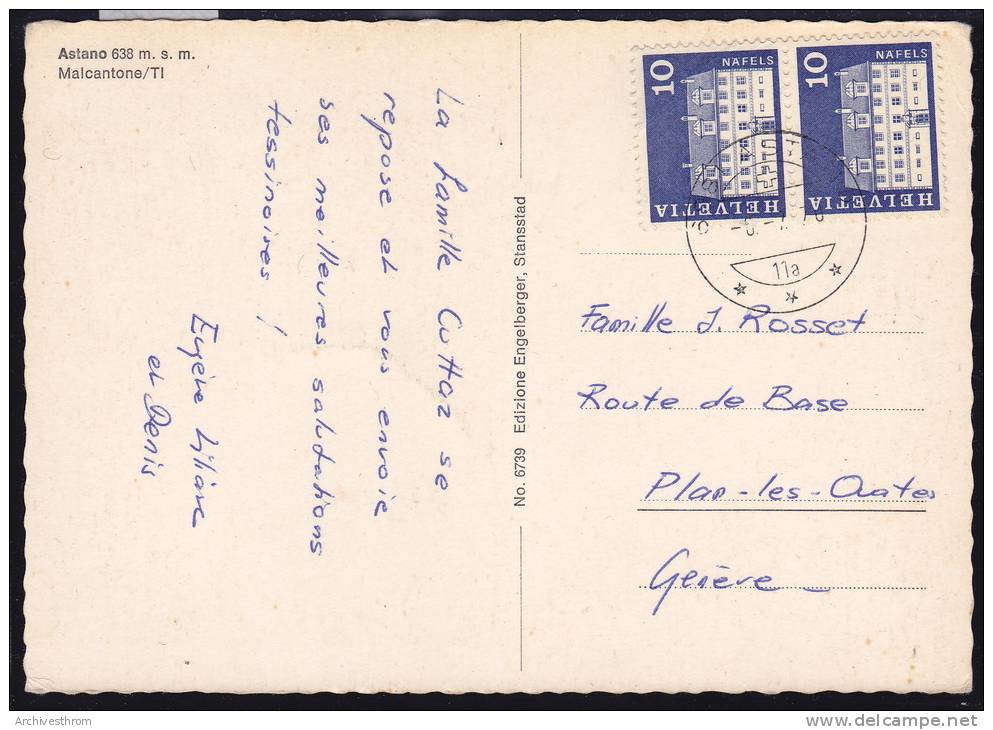 Astano 638 m. s. m.
Malcantone/TI
La famille Cottaz se
repose et vous envoie
ses meilleures salutations
tessinoises !
Eugène Liliane
et Denis
No. 6739 Edizione Engelberger, Stansstad
10 NÄFELS HELVETIA
10 NÄFELS HELVETIA
11a
Famille J. Rosset
Route de Base
Plan-les-Ouates
Genève
Archivesthrom
www.delcampe.net